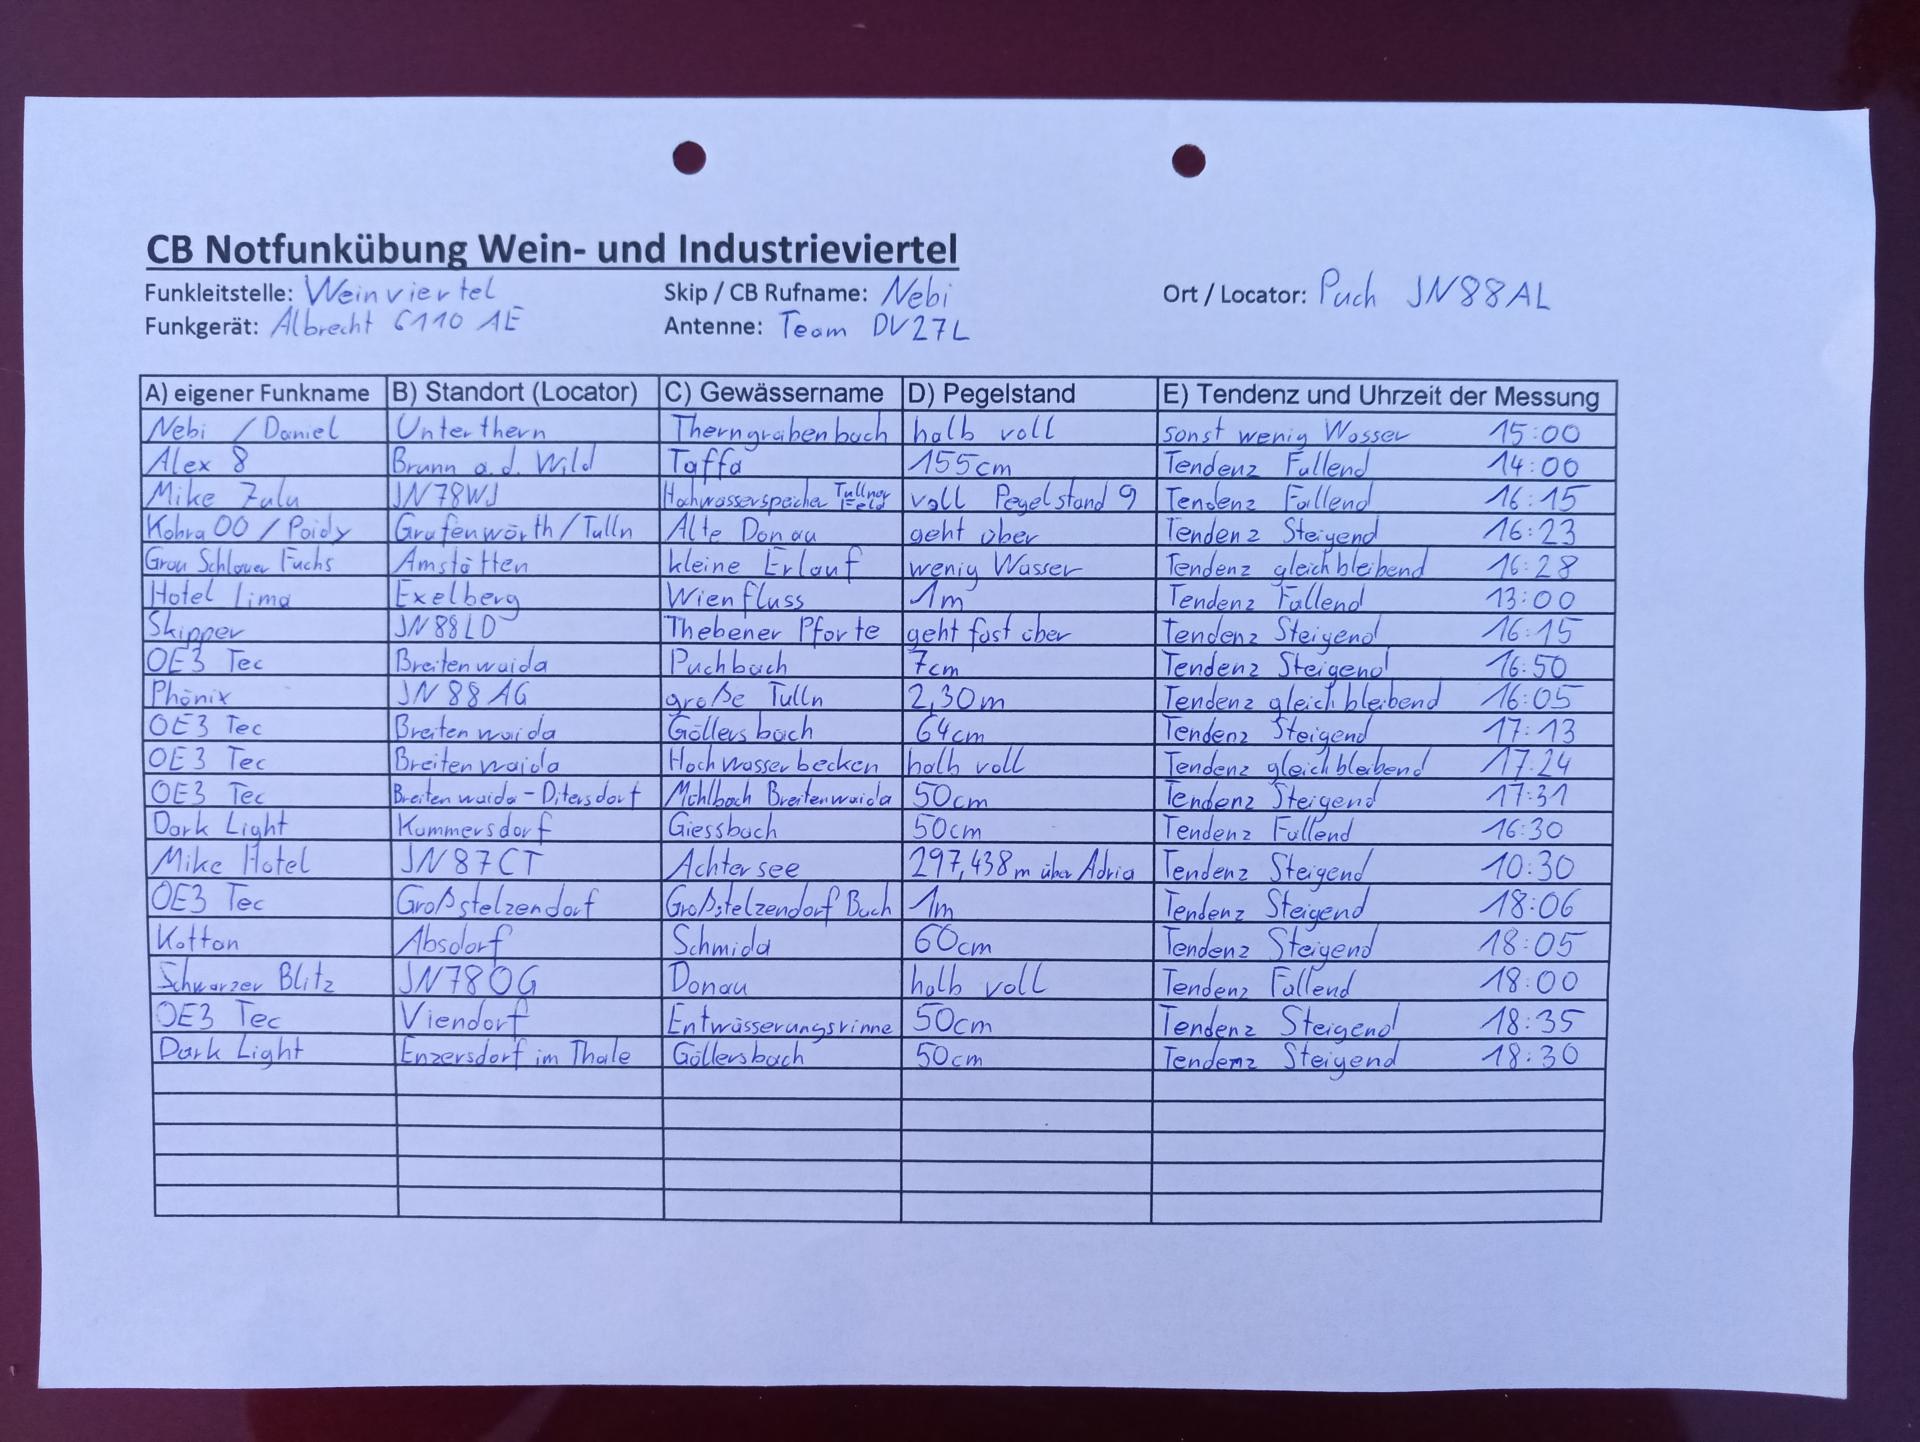 CB Notfunkübung Wein- und Industrieviertel
Funkleitstelle: Weinviertel Skip / CB Rufname: Nebi Ort / Locator: Puch JN88AL
Funkgerät: Albrecht 6110 AE Antenne: Team DV27L
A) eigener Funkname B) Standort (Locator) C) Gewässername D) Pegelstand E) Tendenz und Uhrzeit der Messung
Nebi / Daniel Unterthern Therngrabenbach halb voll sonst wenig Wasser 15:00
Alex 8 Brunn a.d. Wild Taffa 155cm Tendenz Fallend 14:00
Mike Zulu JN78WJ Hochwasserspeicher Tullner Feld voll Pegelstand 9 Tendenz Fallend 16:15
Kobra 00 / Poidy Grafenwörth / Tulln Alte Donau geht über Tendenz Steigend 16:23
Grau Schlauer Fuchs Amstätten kleine Erlauf wenig Wasser Tendenz gleichbleibend 16:28
Hotel Lima Exelberg Wienfluss 1m Tendenz Fallend 13:00
Skipper JN88LD Thebener Pforte geht fast über Tendenz Steigend 16:15
OE3 Tec Breitenwaida Puchbach 7cm Tendenz Steigend 16:50
Phönix JN88AG große Tulln 2,30m Tendenz gleichbleibend 16:05
OE3 Tec Breitenwaida Göllersbach 64cm Tendenz Steigend 17:13
OE3 Tec Breitenwaida Hochwasserbecken halb voll Tendenz gleichbleibend 17:24
OE3 Tec Breitenwaida-Ditersdorf Mühlbach Breitenwaida 50cm Tendenz Steigend 17:31
Dark Light Kammersdorf Giessbach 50cm Tendenz Fallend 16:30
Mike Hotel JN87CT Achtersee 297,438m über Adria Tendenz Steigend 10:30
OE3 Tec Großstelzendorf Großstelzendorf Bach 1m Tendenz Steigend 18:06
Kottan Absdorf Schmida 60cm Tendenz Steigend 18:05
Schwarzer Blitz JN78OG Donau halb voll Tendenz Fallend 18:00
OE3 Tec Viendorf Entwässerungsrinne 50cm Tendenz Steigend 18:35
Dark Light Enzersdorf im Thale Göllersbach 50cm Tendenz Steigend 18:30